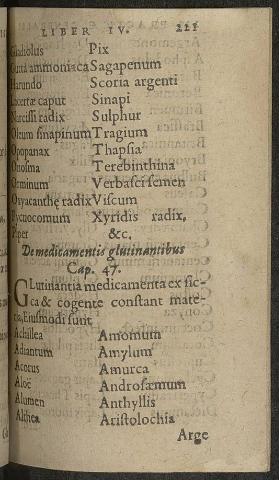 LIBER IV. 221
Gladiolus Pix
Gutta ammoniaca Sagapenum
Harundo Scoria argenti
Lacertæ caput Sinapi
Narcissi radix Sulphur
Oleum sinapinum Tragium
Opopanax Thapsia
Onosma Terebinthina
Orminum Verbasci semen
Oxyacanthę radix Viscum
Pycnocomum Xyridis radix,
Piper &c.
De medicamentis glutinantibus
Cap. 47.
Glutinantia medicamenta ex sic-
ca & cogente constant mate-
ria, Eiusmodi sunt
Achillea Amomum
Adiantum Amylum
Acorus Amurca
Aloë Androsæmum
Alumen Anthyllis
Althea Aristolochia
Arge